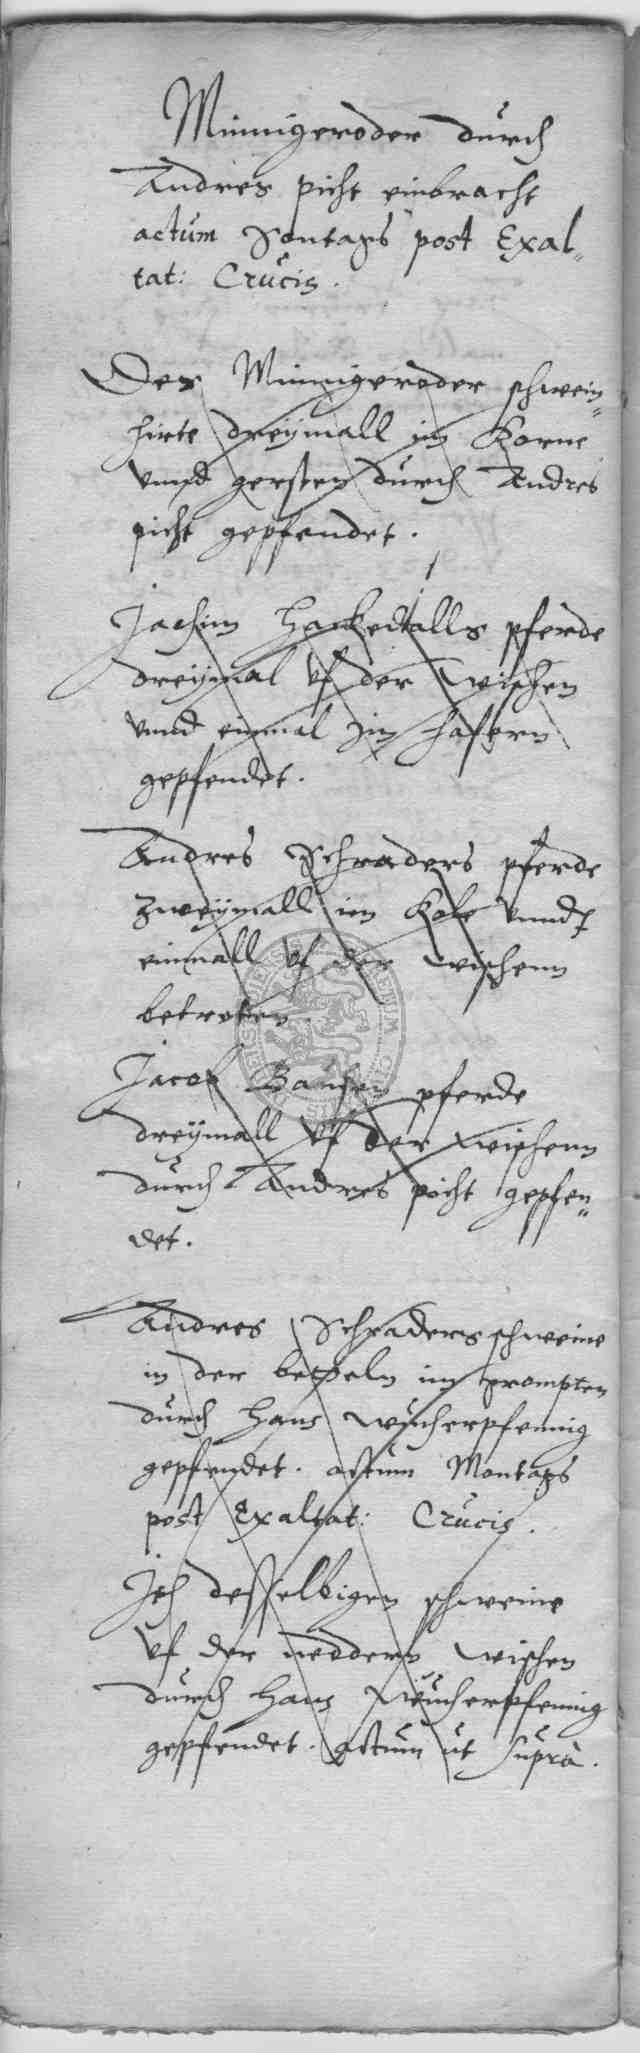 Minnigeroder durch
Andres picht einbracht
actum Sontags post Exal„
tat: Crucis.
Der Minnigeroder schwein„
hirte dreÿmall im Korne
vnnd gersten durch Andres
picht gepfendet.
Jachim Hackedalls pferde
dreÿmal vf der wischen
vnnd einmal im hafern
gepfendet.
Andres Schraders pferde
zweÿmall im Kole vnndt
einmall vf der wischenn
betroten.
Jacob Bausen pferde
dreÿmall vf der wischenn
durch Andres picht gepfen„
det.
Andres Schraders schweine
in der im
durch Hans wucherpfennig
gepfendet. actum Montags
post Exaltat: Crucis.
Jtem desselbigen schweine
vf der neddern wischen
durch Hans Wucherpfennig
gepfendet. actum ut supra.